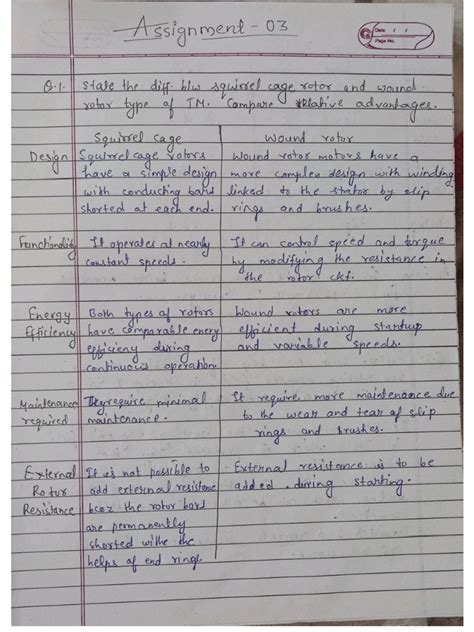 Assignment - 03
Date / /
Page No.
Q.1. State the diff. b/w squirrel cage rotor and wound
rotor type of IM. Compare relative advantages.
Squirrel Cage
Wound rotor
Design
Squirrel cage rotors
have a simple design
with conducting bars
shorted at each end.
Wound rotor motors have a
more complex design with winding
linked to the stator by slip
rings and brushes.
Functionality
It operates at nearly
constant speeds.
It can control speed and torque
by modifying the resistance in
the rotor ckt.
Energy
Efficiency
Both types of rotors
have comparable energy
efficieny during
continuous operation.
Wound rotors are more
efficient during startup
and variable speeds.
Maintenance
required
They require minimal
maintenance.
It require more maintenance due
to the wear and tear of slip
rings and brushes.
External
Rotor
Resistance
It is not possible to
add external resistance
bcoz the rotor bars
are permanently
shorted withe the
helps of end rings.
External resistance is to be
added during starting.